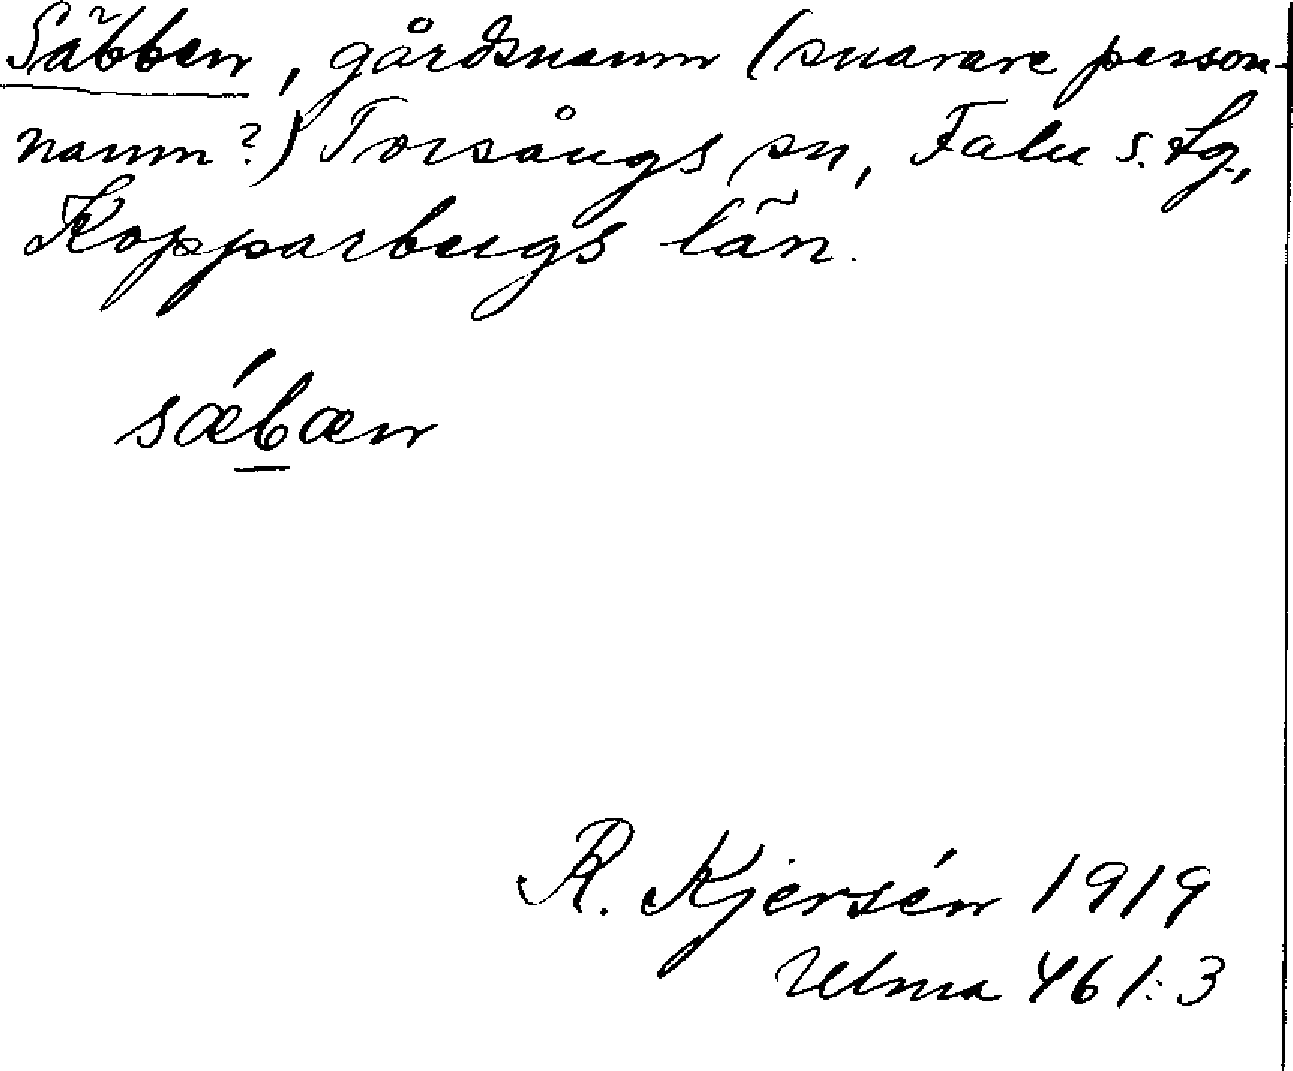 Säbben, gårdsnamn (snarare person-
namn?) Torsångs sn, Falu s. tg,
Kopparbergs län.
sǽbæn
R. Kjersén 1919
Ulma 461:3